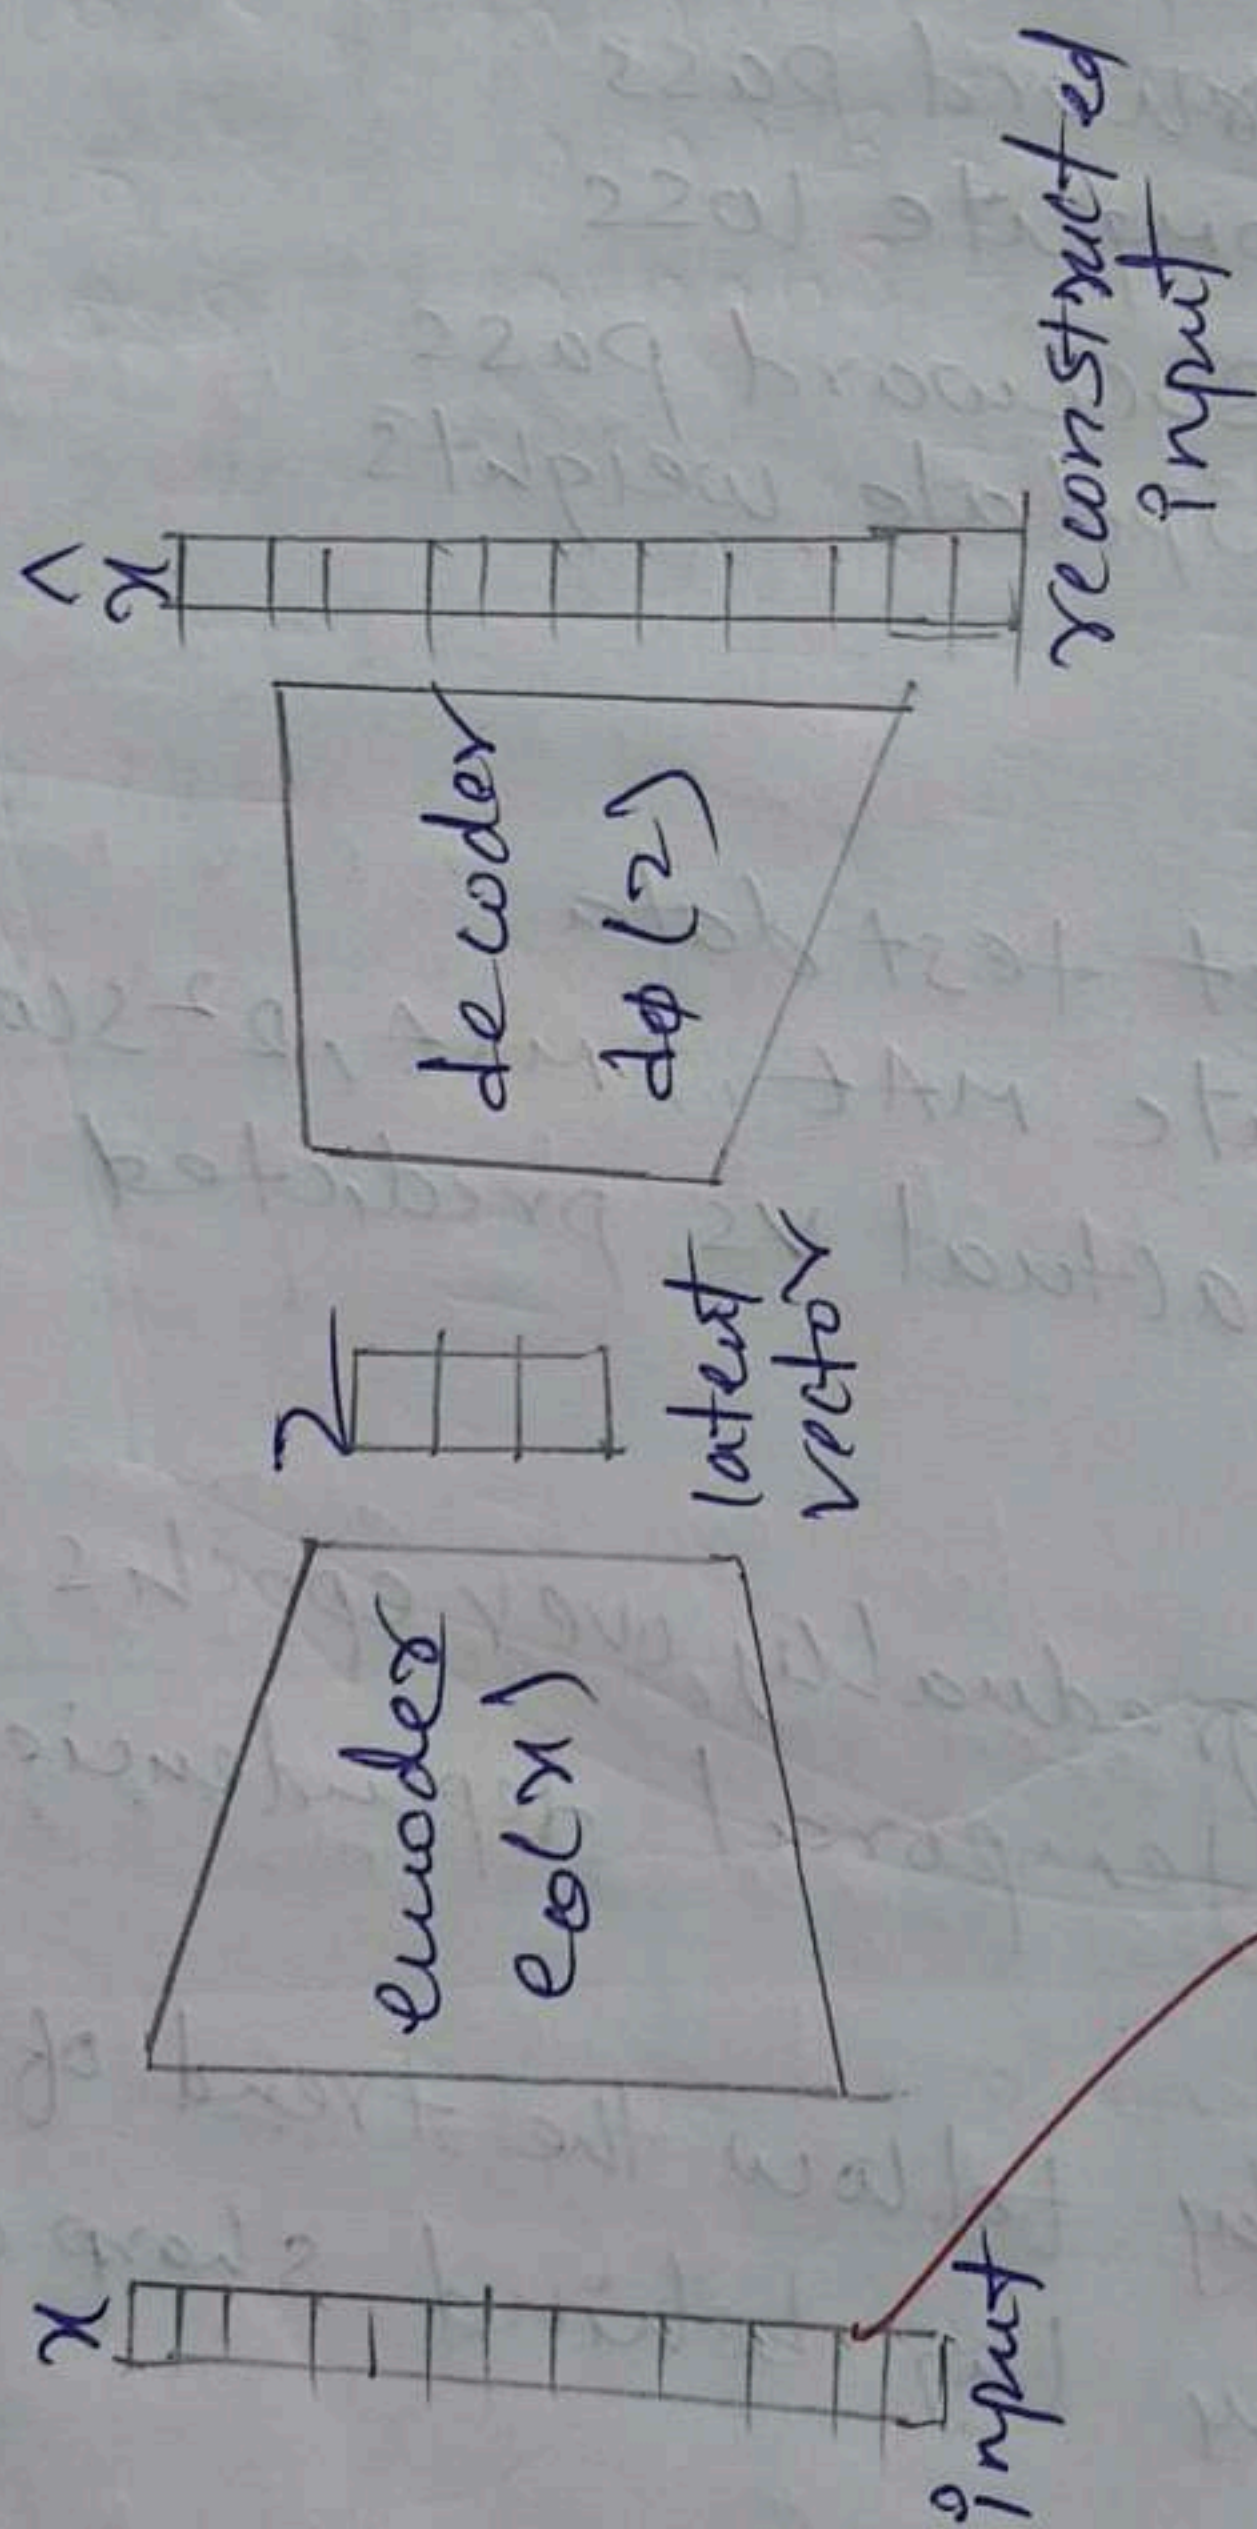 x
input
encoder
eθ(x)
z
latent
vector
decoder
dφ(z)
x̂
reconstructed
input